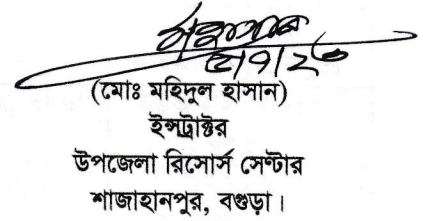 (মোঃ মহিদুল হাসান)
ইন্সট্রাক্টর
উপজেলা রিসোর্স সেন্টার
শাজাহানপুর, বগুড়া।